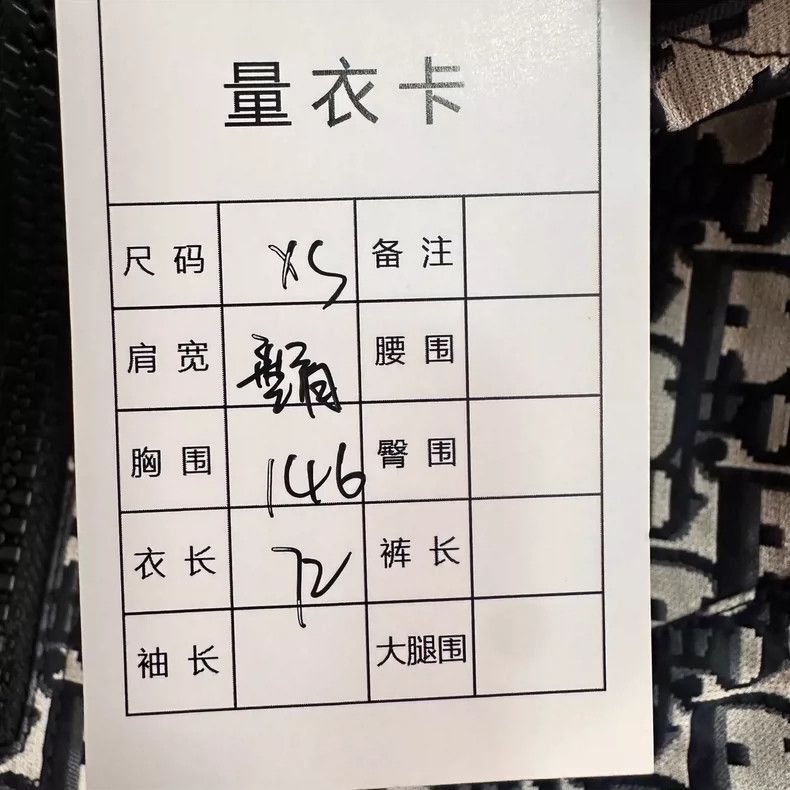 量衣卡
尺码 XS 备注
肩宽 垂肩 腰围
胸围 146 臀围
衣长 72 裤长
袖长 大腿围